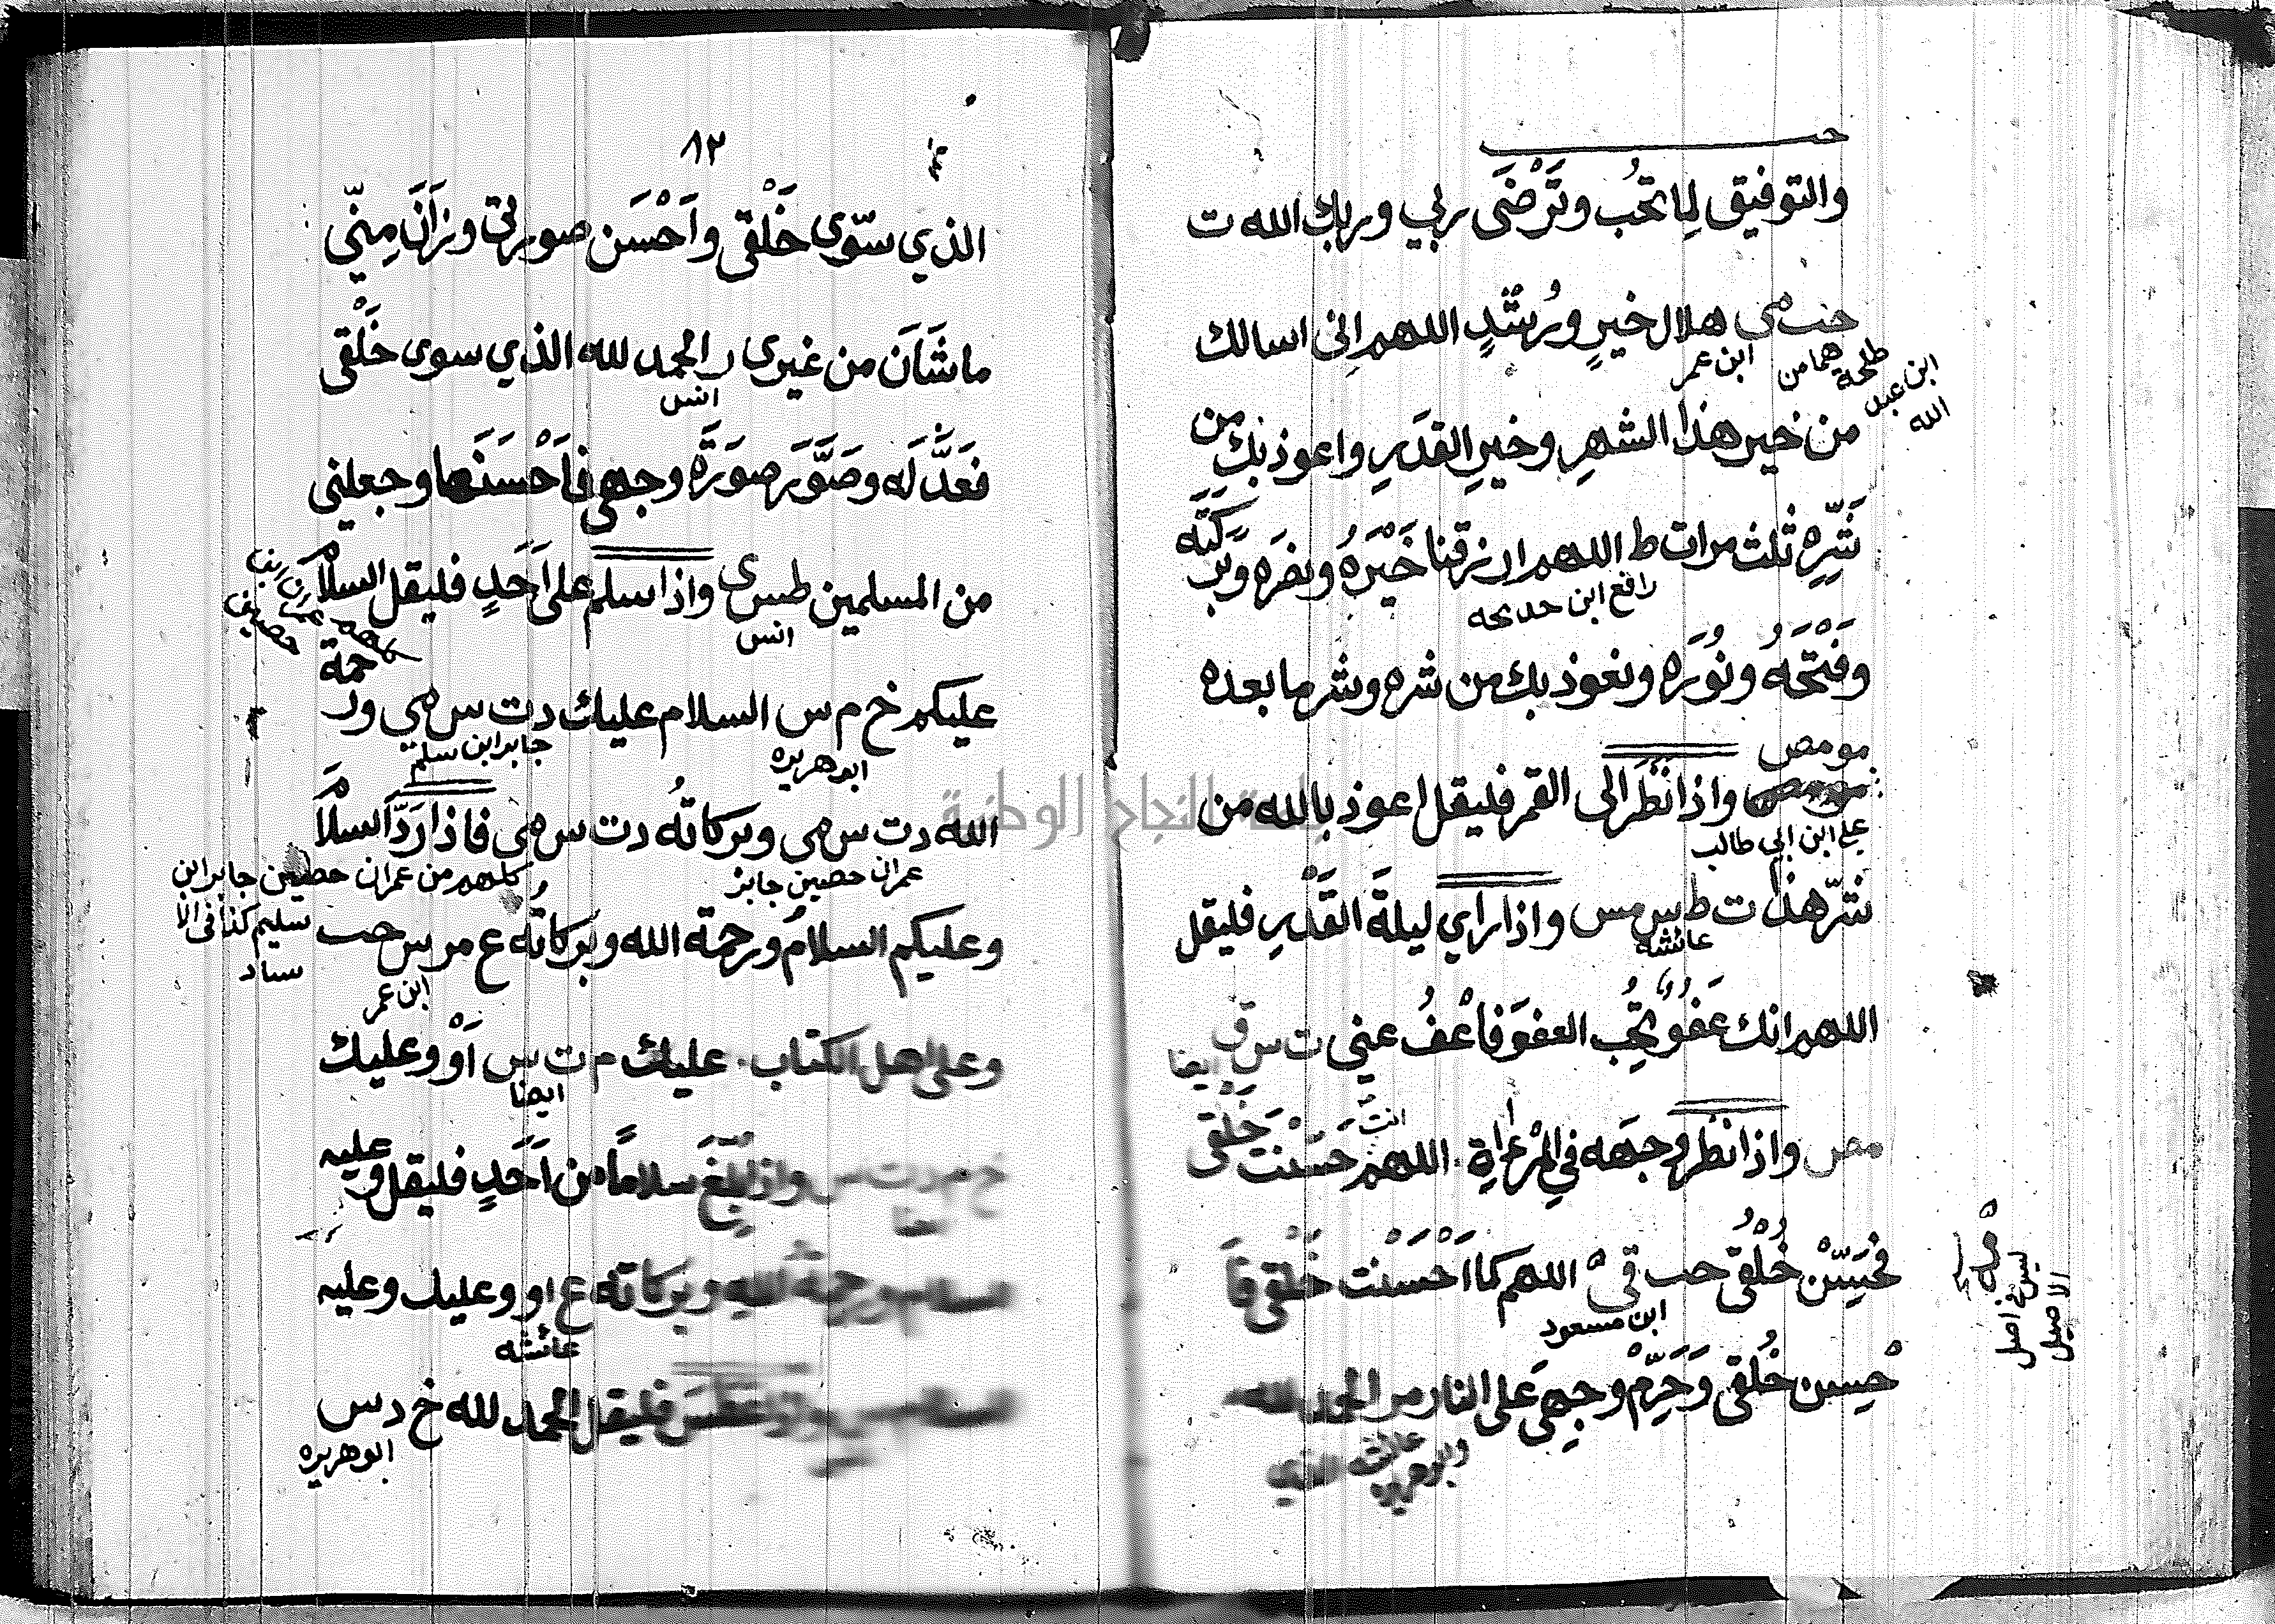 حب
والتوفيق لِما تحُب وتَرْضَى ربي وربك الله ت
حب مى هلال خيرٍ ورُشْدٍ اللهم اِنى اسالك
طلحة ابن عبد الله
ابن عمر
من خيرِ هذا الشهرِ وخيرِ القدَرِ واعوذ بك من
شَرِّه ثلث مرات ط اللهم ارزقنا خَيْرَهُ ونصْرَه وبَرَكَتَه
رافع ابن خديجه
وفَتْحَهُ ونُوْرَه ونعوذ بك من شره وشر ما بعده
مو مص
واذا نَظَرَ الى القمر فليقل اعوذ بالله من
علي ابن ابي طالب
شرّ هذا ت س مس واذا راي ليلةَ القَدْرِ فليقل
عائشه
اللهم انك عَفُوٌّ تُحِب العفوَ فاعْفُ عني ت س ق
ايضا
مص واذا نظر وجهه في المْرِاةِ اللهم انتَ حَسَّنْتَ خَلْقى
فحَسِّنْ خُلْقى حب قى اللهم كما اَحْسَنْت خَلْقى فاَ
ابن مسعود
حْسِن خُلقى وَحَرِّمْ وجهِىَ على النار مر الحمد لله
ليس في اصل الاصيل
٨٢
الذي سَوّى خَلْقى واَحْسَن صورتى وزَانَ مِنّى
ما شَانَ من غيرى ر الحمد لله الذي سوى خَلْقى
انس
فعَدَّلَه وصَوَّرَ صورَةَ وجهى فاَحْسَنَها وجعلنى
من المسلمين طس ى واذا سلم على اَحَدٍ فليقل السلام
انس
عليكم خ م س السلام عليك دت س مى ورحمة
ابو هريره
جابر ابن سليم
الله دت س مى وبركاتُه دت س مى فاذا رَدَّ السلامَ
عمران حصين جابر
كلهم من عمران حصين جابر ابن
سليم كذا فى الا
سناد
وعليكم السلامُ ورحمة الله وبركاتُه ع مر س حب
ابن عمر
وعلى اهل الكتاب عليك م ت س اَوْ وعليك
ايضا
خ م دت س واذا بُلِّغَ سلاماً من اَحَدٍ فليقل وعليه
السلام ورحمةُ الله وبركاته ع او وعليك وعليه
عائشه
السلام س واذا عطَسَ فليقل الحمد لله خ د س
ابو هريره